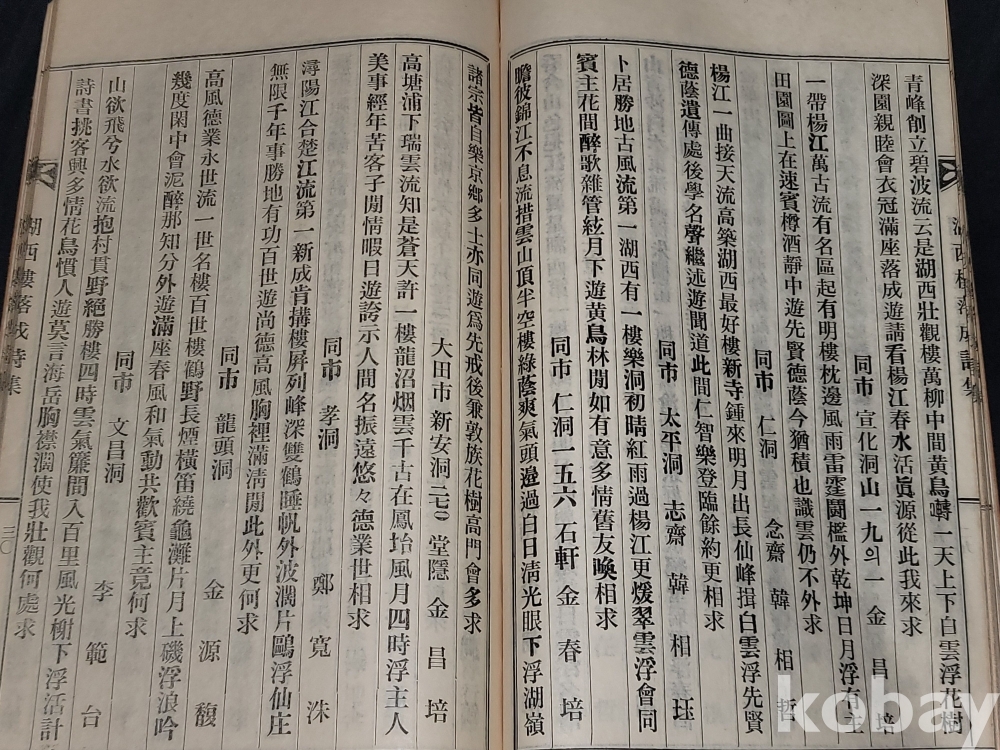 青峰創立碧波流云是湖西壯觀樓萬柳中間黃鳥囀一天上下白雲浮花樹
深園親睦會衣冠滿座落成遊請看楊江春水活眞源從此我來求
同市 宣化洞山一九의一 金昌培
一帶楊江萬古流有名區起有明樓枕邊風雨雷霆鬪檻外乾坤日月浮有主
田園圖上在速賓樽酒靜中遊先賢德蔭今猶積也識雲仍不外求
同市 仁洞 念齋 韓相哲
楊江一曲接天流高築湖西最好樓新寺鍾來明月出長仙峰揖白雲浮先賢
德蔭遺傳處後學名聲繼述遊聞道此間仁智樂登臨餘約更相求
同市 太平洞 志齋 韓相珏
卜居勝地古風流第一湖西有一樓樂洞初晴紅雨過楊江更煖翠雲浮會同
賓主花間醉歌雜管絃月下遊黃鳥林間如有意多情舊友喚相求
同市 仁洞一五六 石軒 金春培
瞻彼錦江不息流措雲山頂半空樓綠蔭爽氣頭邊過白日淸光眼下浮湖嶺
諸宗皆自樂京鄉多士亦同遊爲先戒後兼敦族花樹高門會多求
大田市 新安洞二七〇 堂隱 金昌培
高塘浦下瑞雲流知是蒼天許一樓龍沼烟雲千古在鳳坮風月四時浮主人
美事經年苦客子閒情暇日遊誇示人間名振遠悠々德業世相求
同市 孝洞 鄭寬洙
潯陽江合楚江流第一新成肯搆樓屛列峰深雙鶴睡帆外波濶片鷗浮仙庄
無限千年事勝地有功百世遊尚德高風胸裡滿淸閒此外更何求
同市 龍頭洞 金源馥
高風德業永世流一世名樓百世樓鶴野長煙橫笛繞龜灘片月上磯浮浪吟
幾度閑中會泥醉那知分外遊滿座春風和氣動共歡賓主竟何求
同市 文昌洞 李範台
山欲飛兮水欲流抱村貫野絕勝樓四時雲氣簾間入百里風光榭下浮活計
詩書挑客興多情花鳥慣人遊莫言海岳胸襟濶使我壯觀何處求
湖西樓落成詩集
三〇